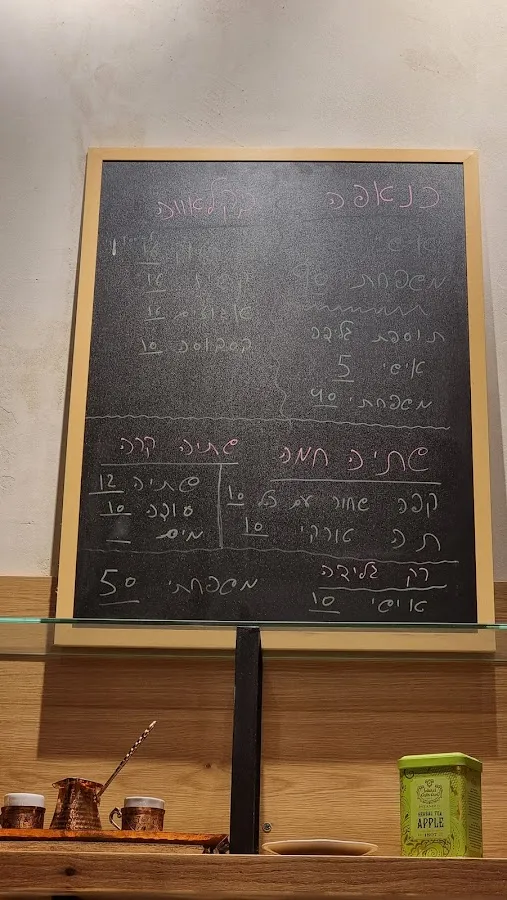 כנאפה
אישי
משפחתי 90
תוספת גלידה
אישי 5
משפחתי 40
בקלאווה
אגוזים
בסבוסה 10
שתיה חמה
קפה שחור עם הל 10
תה טורקי 10
שתיה קרה
שתיה 12
סודה 10
מים
רק גלידה
אישי 10
משפחתי 50
HERBAL TEA
APPLE